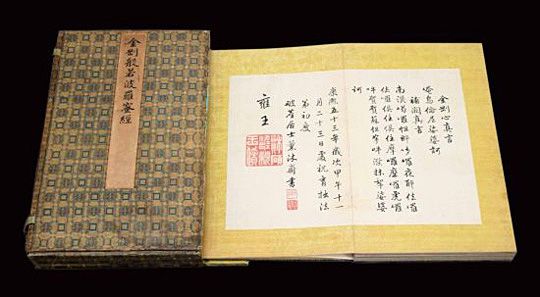 金剛般若波羅蜜經
金剛心真言
唵烏倫尼娑婆訶
補闕真言
喝囉怛那哆囉夜耶佉囉
佉囉俱住俱住摩囉摩囉虎囉
吽賀賀蘇怛拏吽潑抹拏娑婆
訶
康熙五十三年歲次甲午十一
月二十三日虔祝書
初度
居士沐齋書
雍王